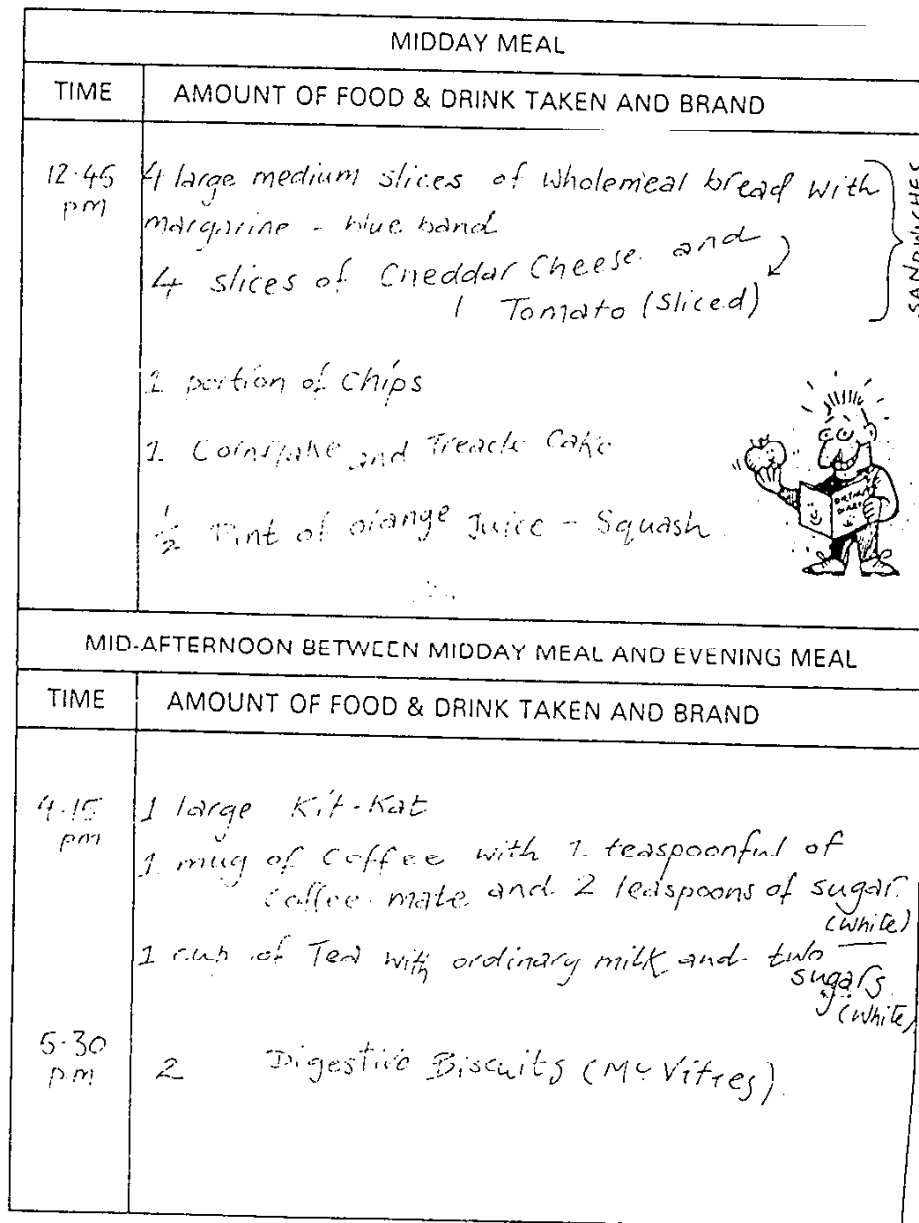 MIDDAY MEAL
TIME
AMOUNT OF FOOD & DRINK TAKEN AND BRAND
12.45
pm
4 large medium slices of wholemeal bread with
margarine - blue band
4 slices of Cheddar Cheese and
1 Tomato (sliced)
SANDWICHES
1 portion of Chips
1 Cornflake and Treacle Cake
1/2 Pint of orange Juice - Squash
MID-AFTERNOON BETWEEN MIDDAY MEAL AND EVENING MEAL
TIME
AMOUNT OF FOOD & DRINK TAKEN AND BRAND
4.15
pm
1 large Kit-Kat
1 mug of Coffee with 1 teaspoonful of
Coffee-mate and 2 teaspoons of sugar.
(white)
1 cup of Tea with ordinary milk and two
sugars.
(white)
5.30
p.m
2 Digestive Biscuits (McVities).